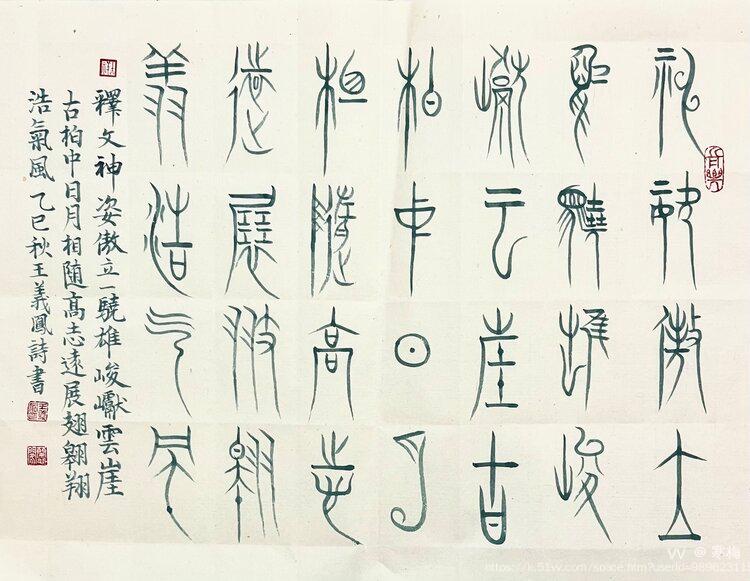 神姿傲立
一驍雄峻
巘云崖古
柏中日月
相隨高志
遠展翅翱
翔浩气風
釋文神姿傲立一驍雄峻巘雲崖
古柏中日月相随高志遠展翅翱翔
浩氣風乙巳秋王義鳳詩書
VV @ 寒梅